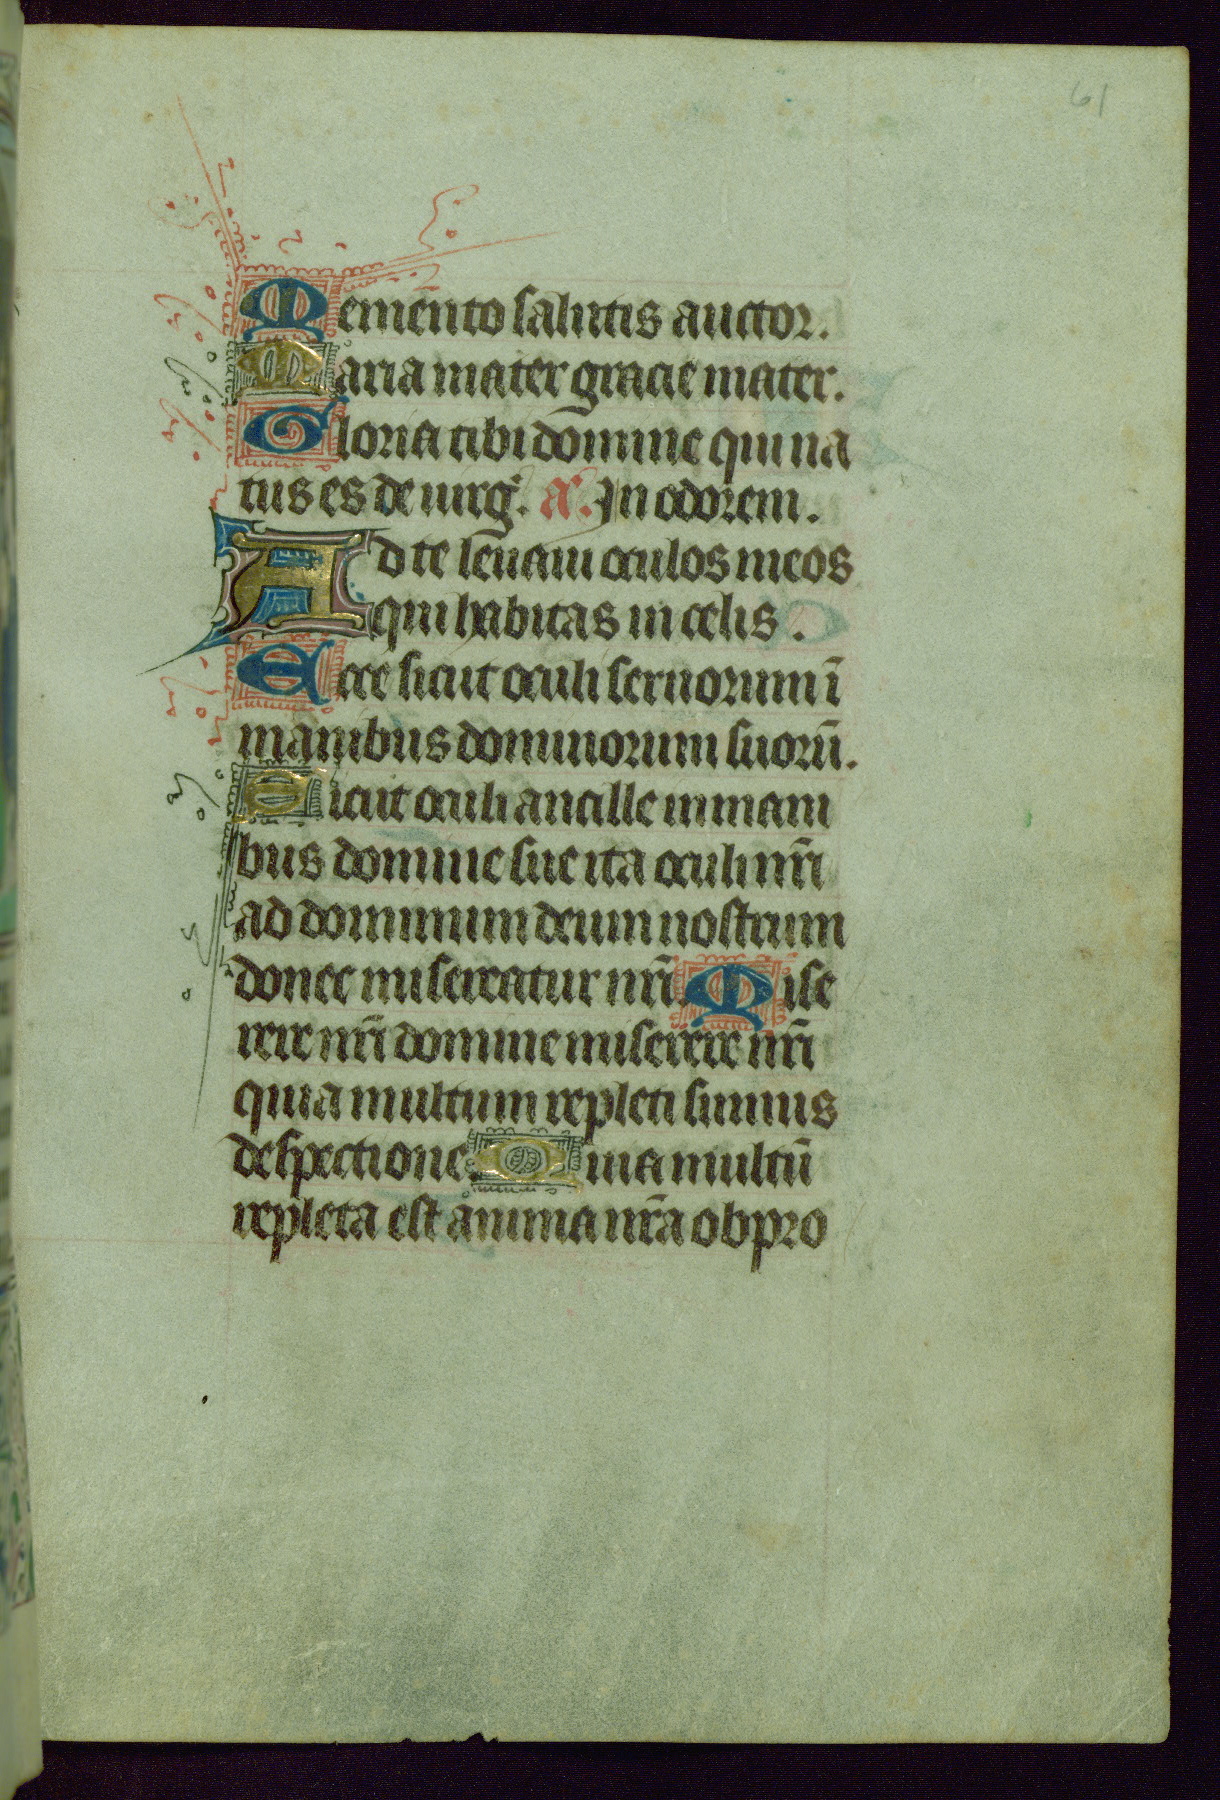 61
Memento salutis auctor.
Maria mater gracie mater.
Gloria tibi domine qui na
tus es de uirg. a. In odorem.
Ad te leuaui oculos meos
qui habitas in celis.
Ecce sicut oculi seruorum ī
manibus dominorum suorū.
Sicut oculi ancille in mani
bus domine sue ita oculi nr̄i
ad dominum deum nostrum
donec misereatur nr̄i. Mise
rere nr̄i domine miserere nr̄i
quia multum repleti sumus
despectione. Quia multū
repleta est anima nr̄a obpro